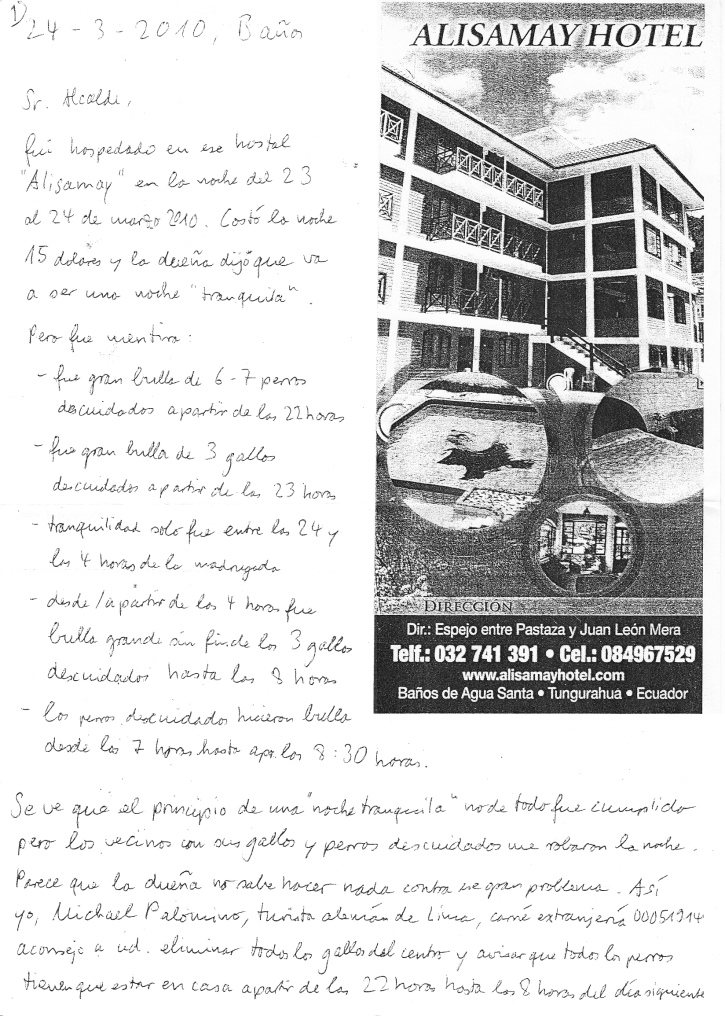 1)
24-3-2010, Baños
Sr. Alcalde,
fui hospedado en ese hostal
"Alisamay" en la noche del 23
al 24 de marzo 2010. Costó la noche
15 dolares y la dueña dijó que va
a ser una noche "tranquila".
Pero fue mentira:
- fue gran bulla de 6-7 perros
descuidados a partir de las 22 horas
- fue gran bulla de 3 gallos
descuidados a partir de las 23 horas
- tranquilidad solo fue entre las 24 y
las 4 horas de la madrugada
- desde/a partir de las 4 horas fue
bulla grande sin fin de los 3 gallos
descuidados hasta las 8 horas
- los perros descuidados hicieron bulla
desde las 7 horas hasta apr. las 8:30 horas.
Se ve que el principio de una "noche tranquila" no de todo fue cumplido
pero los vecinos con sus gallos y perros descuidados me robaron la noche.
Parece que la dueña no sabe hacer nada contra ese gran problema. Así
yo, Michael Palomino, turista alemán de Lima, carné extranjería 00051914
aconsejo a ud. eliminar todos los gallos del centro y avisar que todos los perros
tienen que estar en casa a partir de las 22 horas hasta las 8 horas del día siguiente
ALISAMAY HOTEL
DIRECCION
Dir.: Espejo entre Pastaza y Juan León Mera
Telf.: 032 741 391 • Cel.: 084967529
www.alisamayhotel.com
Baños de Agua Santa • Tungurahua • Ecuador